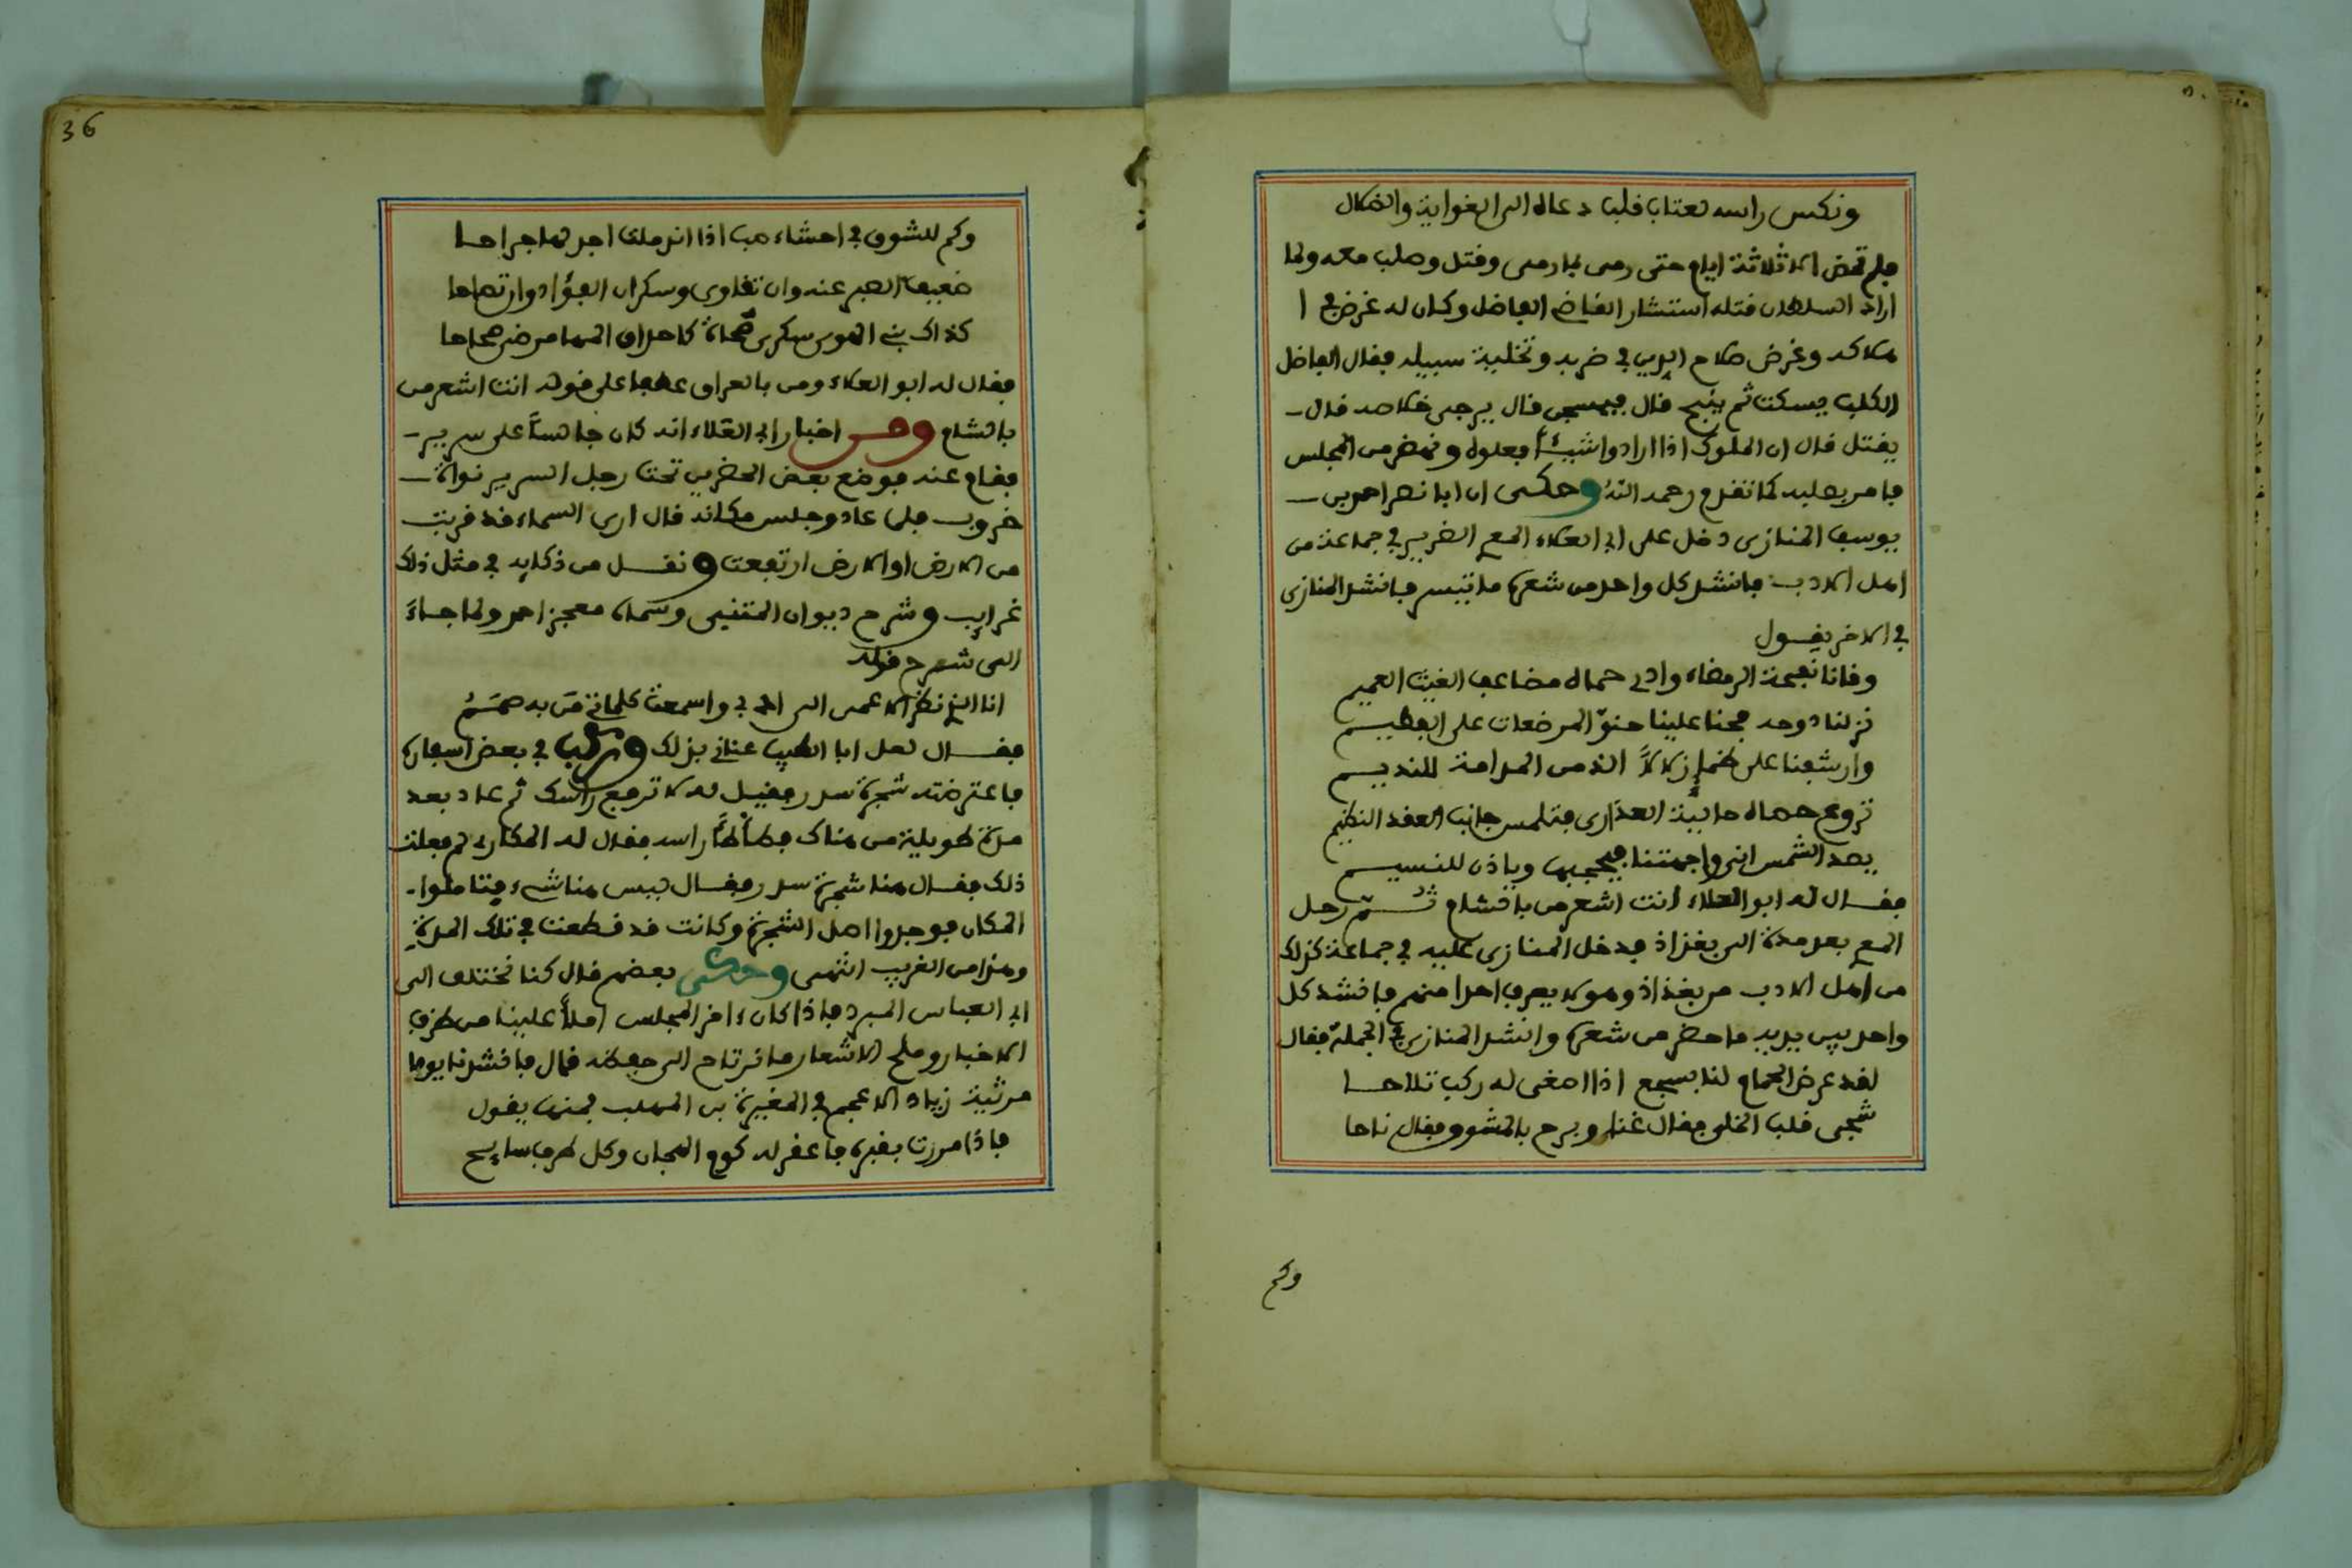 ونكس راسه لعتاب قلب دعاه الى الغواية والضلال
فلم تمض الا ثلاثة ايام حتى رمى بما رمى وقتل وصلب معه ولما
اراد السلطان قتله استشار القاضي الفاضل وكان له غرض في ا
هلاكه وغرض صلاح الدين في ضربه وتخلية سبيله فقال الفاضل
الكلب يسكت ثم ينبح قال فيسجن قال يرجى خلاصه قال
يقتل قال ان الملوك اذا ارادوا شيئا فعلوه ونهض من المجلس
فامر بصلبه كما تقدم رحمه الله وحكى ان ابا نصر احمد بن
يوسف المنازي دخل على ابي العلاء المعري الضرير في جماعة من
اهل الادب فانشد كل واحد من شعره ما تيسر فانشد المنازي
في الاخر يقول
وقانا لفحة الرمضاء وادي حماه مضاعف الغيث العميم
نزلنا دوحه فحنا علينا حنو المرضعات على الفطيم
وارشفنا على ظمإ زلالا الذ من المدامة للنديم
تروع حصاه حالية العذارى فتلمس جانب العقد النظيم
يصد الشمس انى واجهتنا فيحجبها وياذن للنسيم
فقال له ابو العلاء انت اشعر من بالشام ثم رحل
المعري بعد مدة الى بغداذ فدخل المنازي عليه في جماعة كذلك
من اهل الادب من بغداذ وهو لا يعرف احدا منهم فانشد كل
واحد بين يديه ما حضر من شعره وانشد المنازي في الجملة فقال
لقد عرض الحمام لنا بسجع اذا اصغى له ركب تلاحا
شجى قلب الخلي فقال غنا وبرح بالشوق فقال ناحا
وكم
36
وكم للشوق في احشاء صب اذا اندملت اجد لها جراحا
ضعيف الصبر عنه وان تقاوى وسكران الفؤاد وان تصاحا
كذاك بني الهوى سكرى صحاة كاحداق المها مرضى صحاحا
فقال له ابو العلاء ومن بالعراق عطفا على قوله انت اشعر من
بالشام ومن اخبار ابي العلاء انه كان جالسا على سرير
فقام عنه فوضع بعض الحضرين تحت رجل السرير نواة
خروب فلما عاد وجلس مكانه قال ارى السماء قد قربت
من الارض او الارض ارتفعت ونقل من ذكايه في مثل ذلك
غرايب وشرح ديوان المتنبي وسماه معجز احمد ولما جاء
الى شرح قوله
انا الذي نظر الاعمى الى ادبي واسمعت كلماتي من به صمم
فقال لعل ابا الطيب عناني بذلك وركب في بعض اسفاره
فاعترضته شجرة سدر فقيل له لا ترفع راسك ثم عاد بعد
مدة طويلة من هناك فطأطأ راسه فقال له المكاري لم فعلت
ذلك فقال هنا شجرة سدر فقال ليس هنا شيء فتاملوا
المكان فوجدوا اصل الشجرة وكانت قد قطعت في تلك المدة
وهذا من الغريب انتهى وحكى بعضهم قال كنا نختلف الى
ابي العباس المبرد فاذا كان ءاخر المجلس املأ علينا من طرف
الاخبار وملح الاشعار ما نرتاح الى حفظه قال فانشدنا يوما
مرثية زياد الاعجم في المغيرة بن المهلب فمنها يقول
فاذا مررت بقبره فاعقر له كوم الهجان وكل طرف سابح